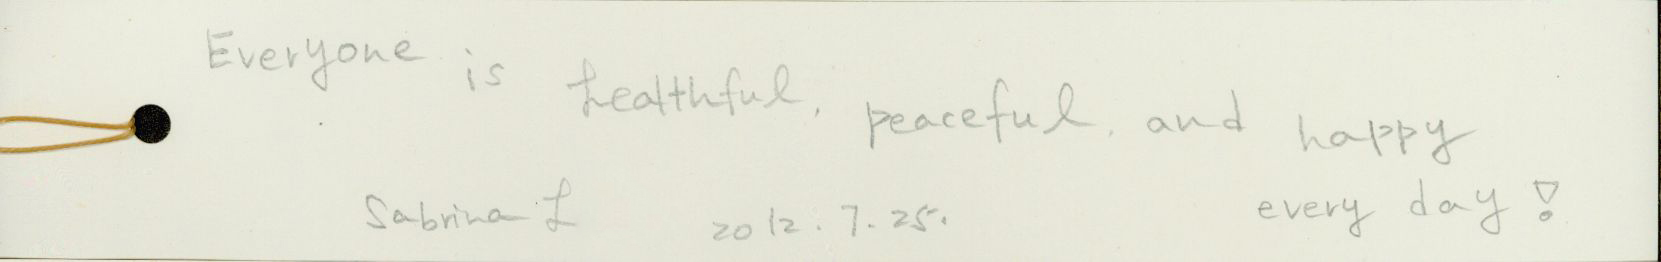 Everyone is healthful, peaceful, and happy
every day!
Sabrina L 2012.7.25.